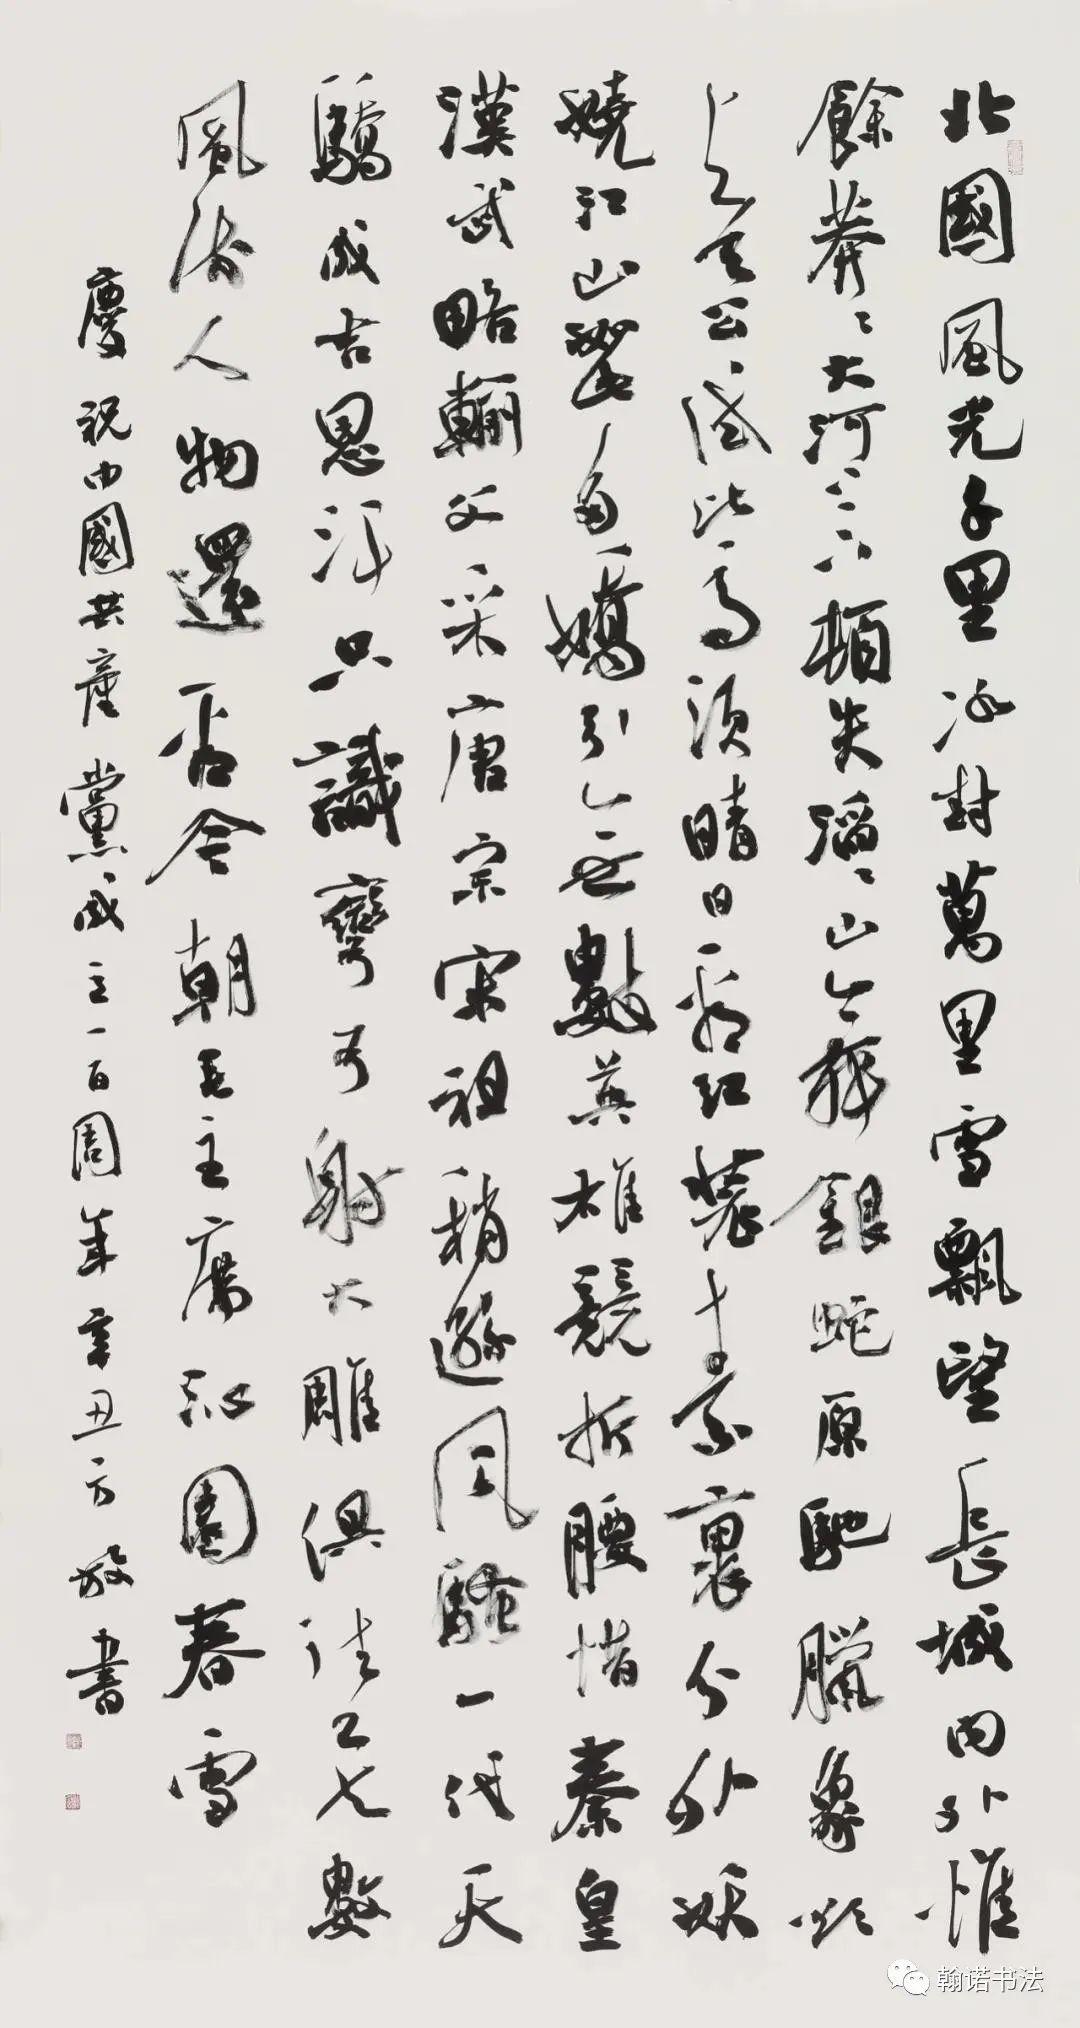 北國風光千里冰封萬里雪飄望長城內外惟
餘莽〻大河上下頓失滔〻山舞銀蛇原馳臘象欲
與天公試比高須晴日看紅裝素裹分外妖
嬈江山如此多嬌引無數英雄競折腰惜秦皇
漢武略輸文采唐宗宋祖稍遜風騷一代天
驕成吉思汗只識彎弓射大雕俱往矣數
風流人物還看今朝毛主席沁園春雪
慶祝中國共產黨成立一百周年辛丑方敬書
翰诺书法